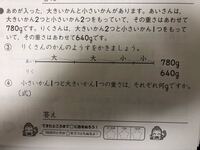 あめが入った、大きいかんと小さいかんがあります。あいさんは、
大きいかん2つと小さいかん2つをもっていて、その重さはあわせて
780gです。りくさんは、大きいかん2つと小さいかん1つをもってい
て、その重さはあわせて640gです。
③ りくさんのかんのようすをかきましょう。
大 大 小 小
780g
りく
640g
④ 小さいかん1つと大きいかん1つの重さは、それぞれ何gですか。
(式)
答え